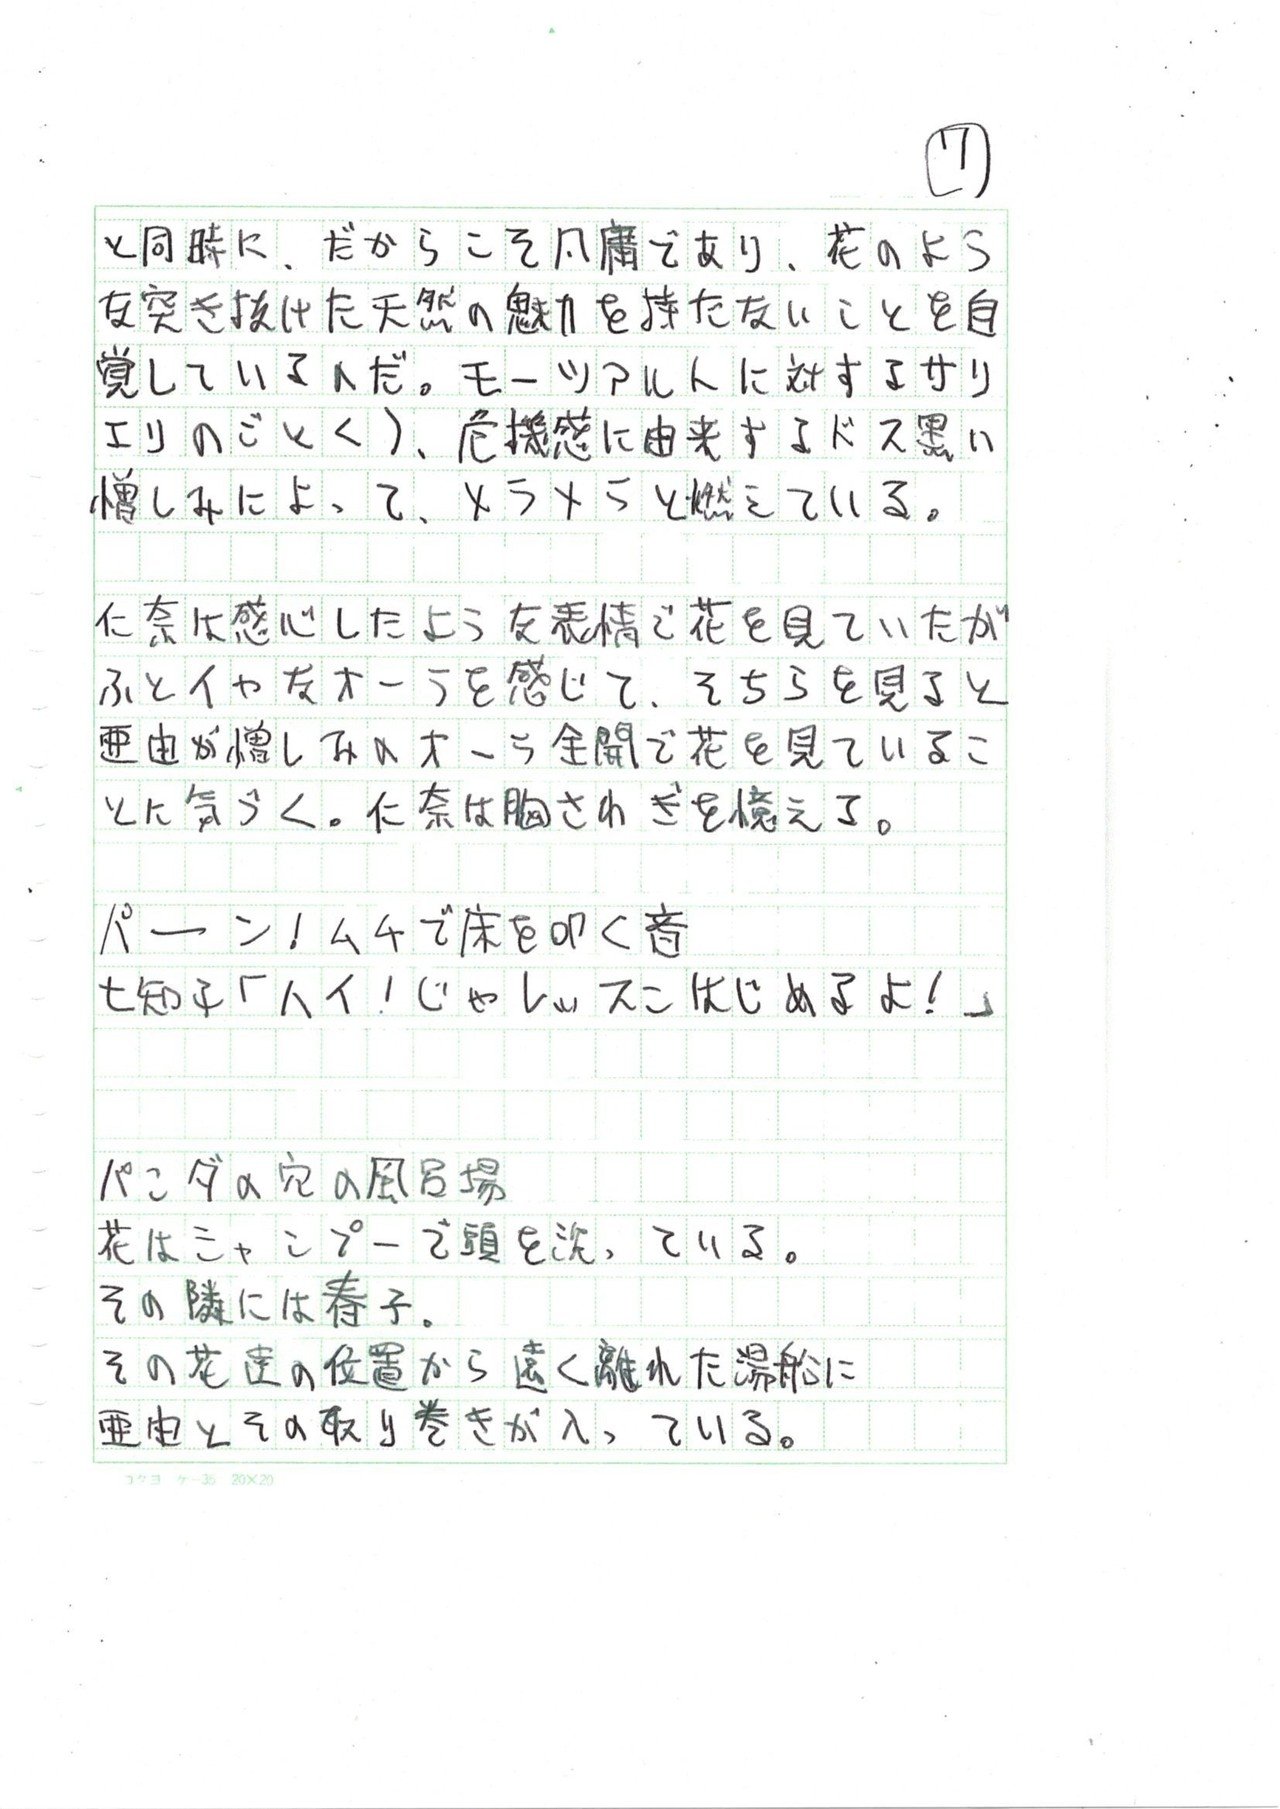 7
と同時に、だからこそ凡庸であり、花のよう
な突き抜けた天然の魅力を持たないことを自
覚しているのだ。モーツアルトに対するサリ
エリのごとく)、危機感に由来するドス黒い
憎しみによって、メラメラと燃えている。
仁奈は感心したような表情で花を見ていたが
ふとイヤなオーラを感じて、そちらを見ると
亜由が憎しみのオーラ全開で花を見ているこ
とに気づく。仁奈は胸さわぎを憶える。
パーン!ムチで床を叩く音
七知子「ハイ!じゃレッスンはじめるよ!」
パンダの穴の風呂場
花はシャンプーで頭を洗っている。
その隣には春子。
その花達の位置から遠く離れた湯船に
亜由とその取り巻きが入っている。
コクヨ ケ-35 20×20